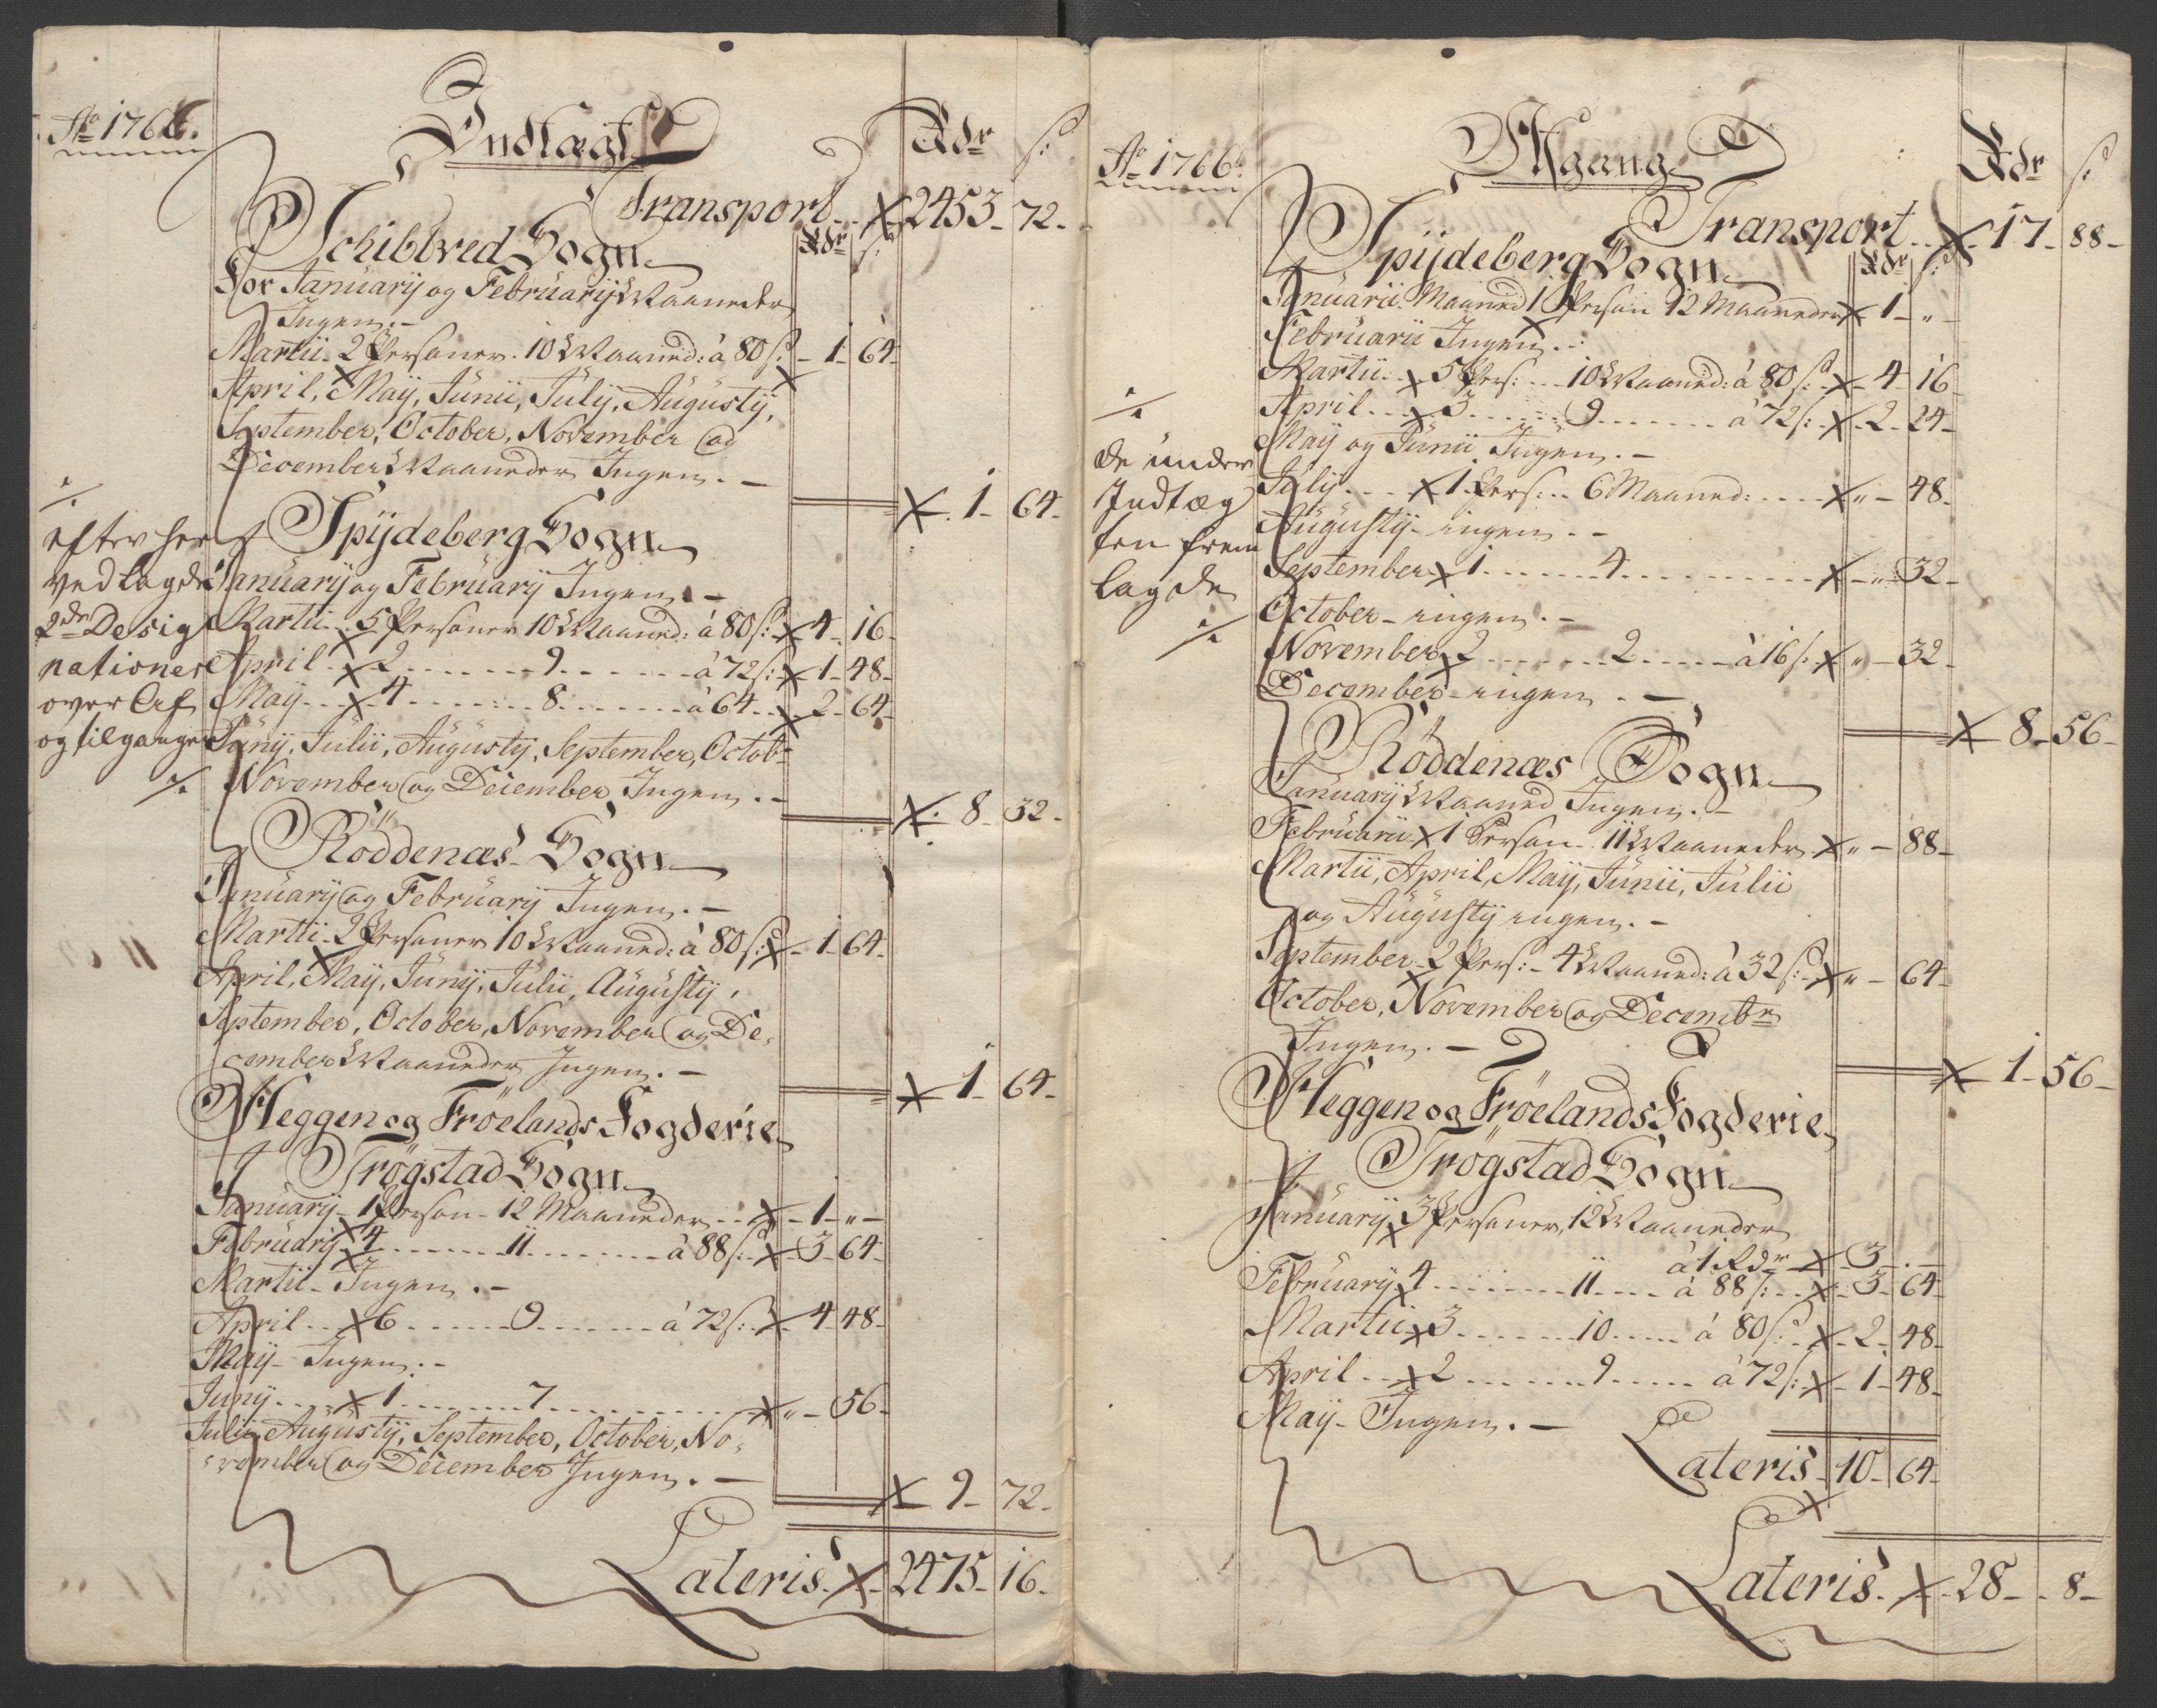 Ao 1766.
Indtægt
Rdr ß:
Transport 2453 - 72 -
Schibtved Sogn
Rdr ß:
For Januarij og Februarij Maaneder
Ingen. -
Martii - 2 Personer - 10 Maaned: à 80 ß: - 1 - 64 -
April, Maij, Junii, Julij, Augustij,
September, October, November og
December Maaneder Ingen. -
1 - 64 -
./.
efter her
ved lagde
2de Desig
nationer
over Af
og tilganger
./.
Spÿdeberg Sogn
Januarij og Februarij Ingen. -
Martii - 5 Personer 10 Maaned: à 80 ß: 4 - 16 -
April - 2 - 9 - à 72 ß: 1 - 48 -
Maij - 4 - 8 - à 64 - 2 - 64 -
Junij, Julii, Augustij, September, Octob:
November og December Ingen. -
8 - 32 -
Röddenæs Sogn
Januarij og Februarij Ingen. -
Martii - 2 Personer 10 Maaned: à 80 ß: - 1 - 64 -
April, Maij, Junij, Julii, Augustij,
September, October, November og De-
cember Maaneder Ingen. -
1 - 64 -
Heggen og Fröelands Fogderie
Trögstad Sogn
Januarij - 1 Person - 12 Maaneder - 1 - " -
Februarij 4 - 11 - à 88 ß: - 3 - 64 -
Martii - Ingen. -
April - 6 - 9 - à 72 ß: - 4 - 48 -
Maij - Ingen. -
Junij - 1 - 7 - " - 56 -
Julii, Augustij, September, October, No-
vember og December Ingen. -
9 - 72 -
Lateris - 2475 - 16 -
Ao 1766.
Afgang
Rdr ß:
Transport - 17 - 88 -
Spÿdeberg Sogn
Rdr ß:
Januarii Maaned 1 Person 12 Maaneder 1 - " -
Februarii Ingen. -
Martii - 5 Pers: - 10 Maaned: à 80 ß: - 4 - 16
April - 3 - 9 - à 72 ß: - 2 - 24 -
Maij og Junii Ingen. -
Julij - 1 Pers: - 6 Maaned: - " - 48 -
Augustij - ingen. -
September 1 - 4 - " - 32 -
October - ingen. -
November 2 - 2 - à 16 ß: " - 32 -
December - ingen. -
8 - 56 -
./.
de under
Indtæg
ten frem
lagde
./.
Röddenæs Sogn
Januarij Maaned Ingen. -
Februarii 1 Person - 11 Maaneder " - 88 -
Martii, April, Maij, Junii, Julii
og Augustij ingen. -
September 2 Pers: - 4 Maaned: à 32 ß: " - 64 -
October, November og Decembr
Ingen. -
1 - 56 -
Heggen og Fröelands Fogderie
Trögstad Sogn
Januarij 3 Personer, 12 Maaneder
à 1 Rdr - 3 - . -
Februarij 4 - 11 - à 88 ß: - 3 - 64 -
Martii 3 - 10 - à 80 ß: - 2 - 48 -
April - 2 - 9 - à 72 ß: - 1 - 48 -
Maij - Ingen. -
Lateris - 10 - 64 -
Lateris - 28 - 8 -